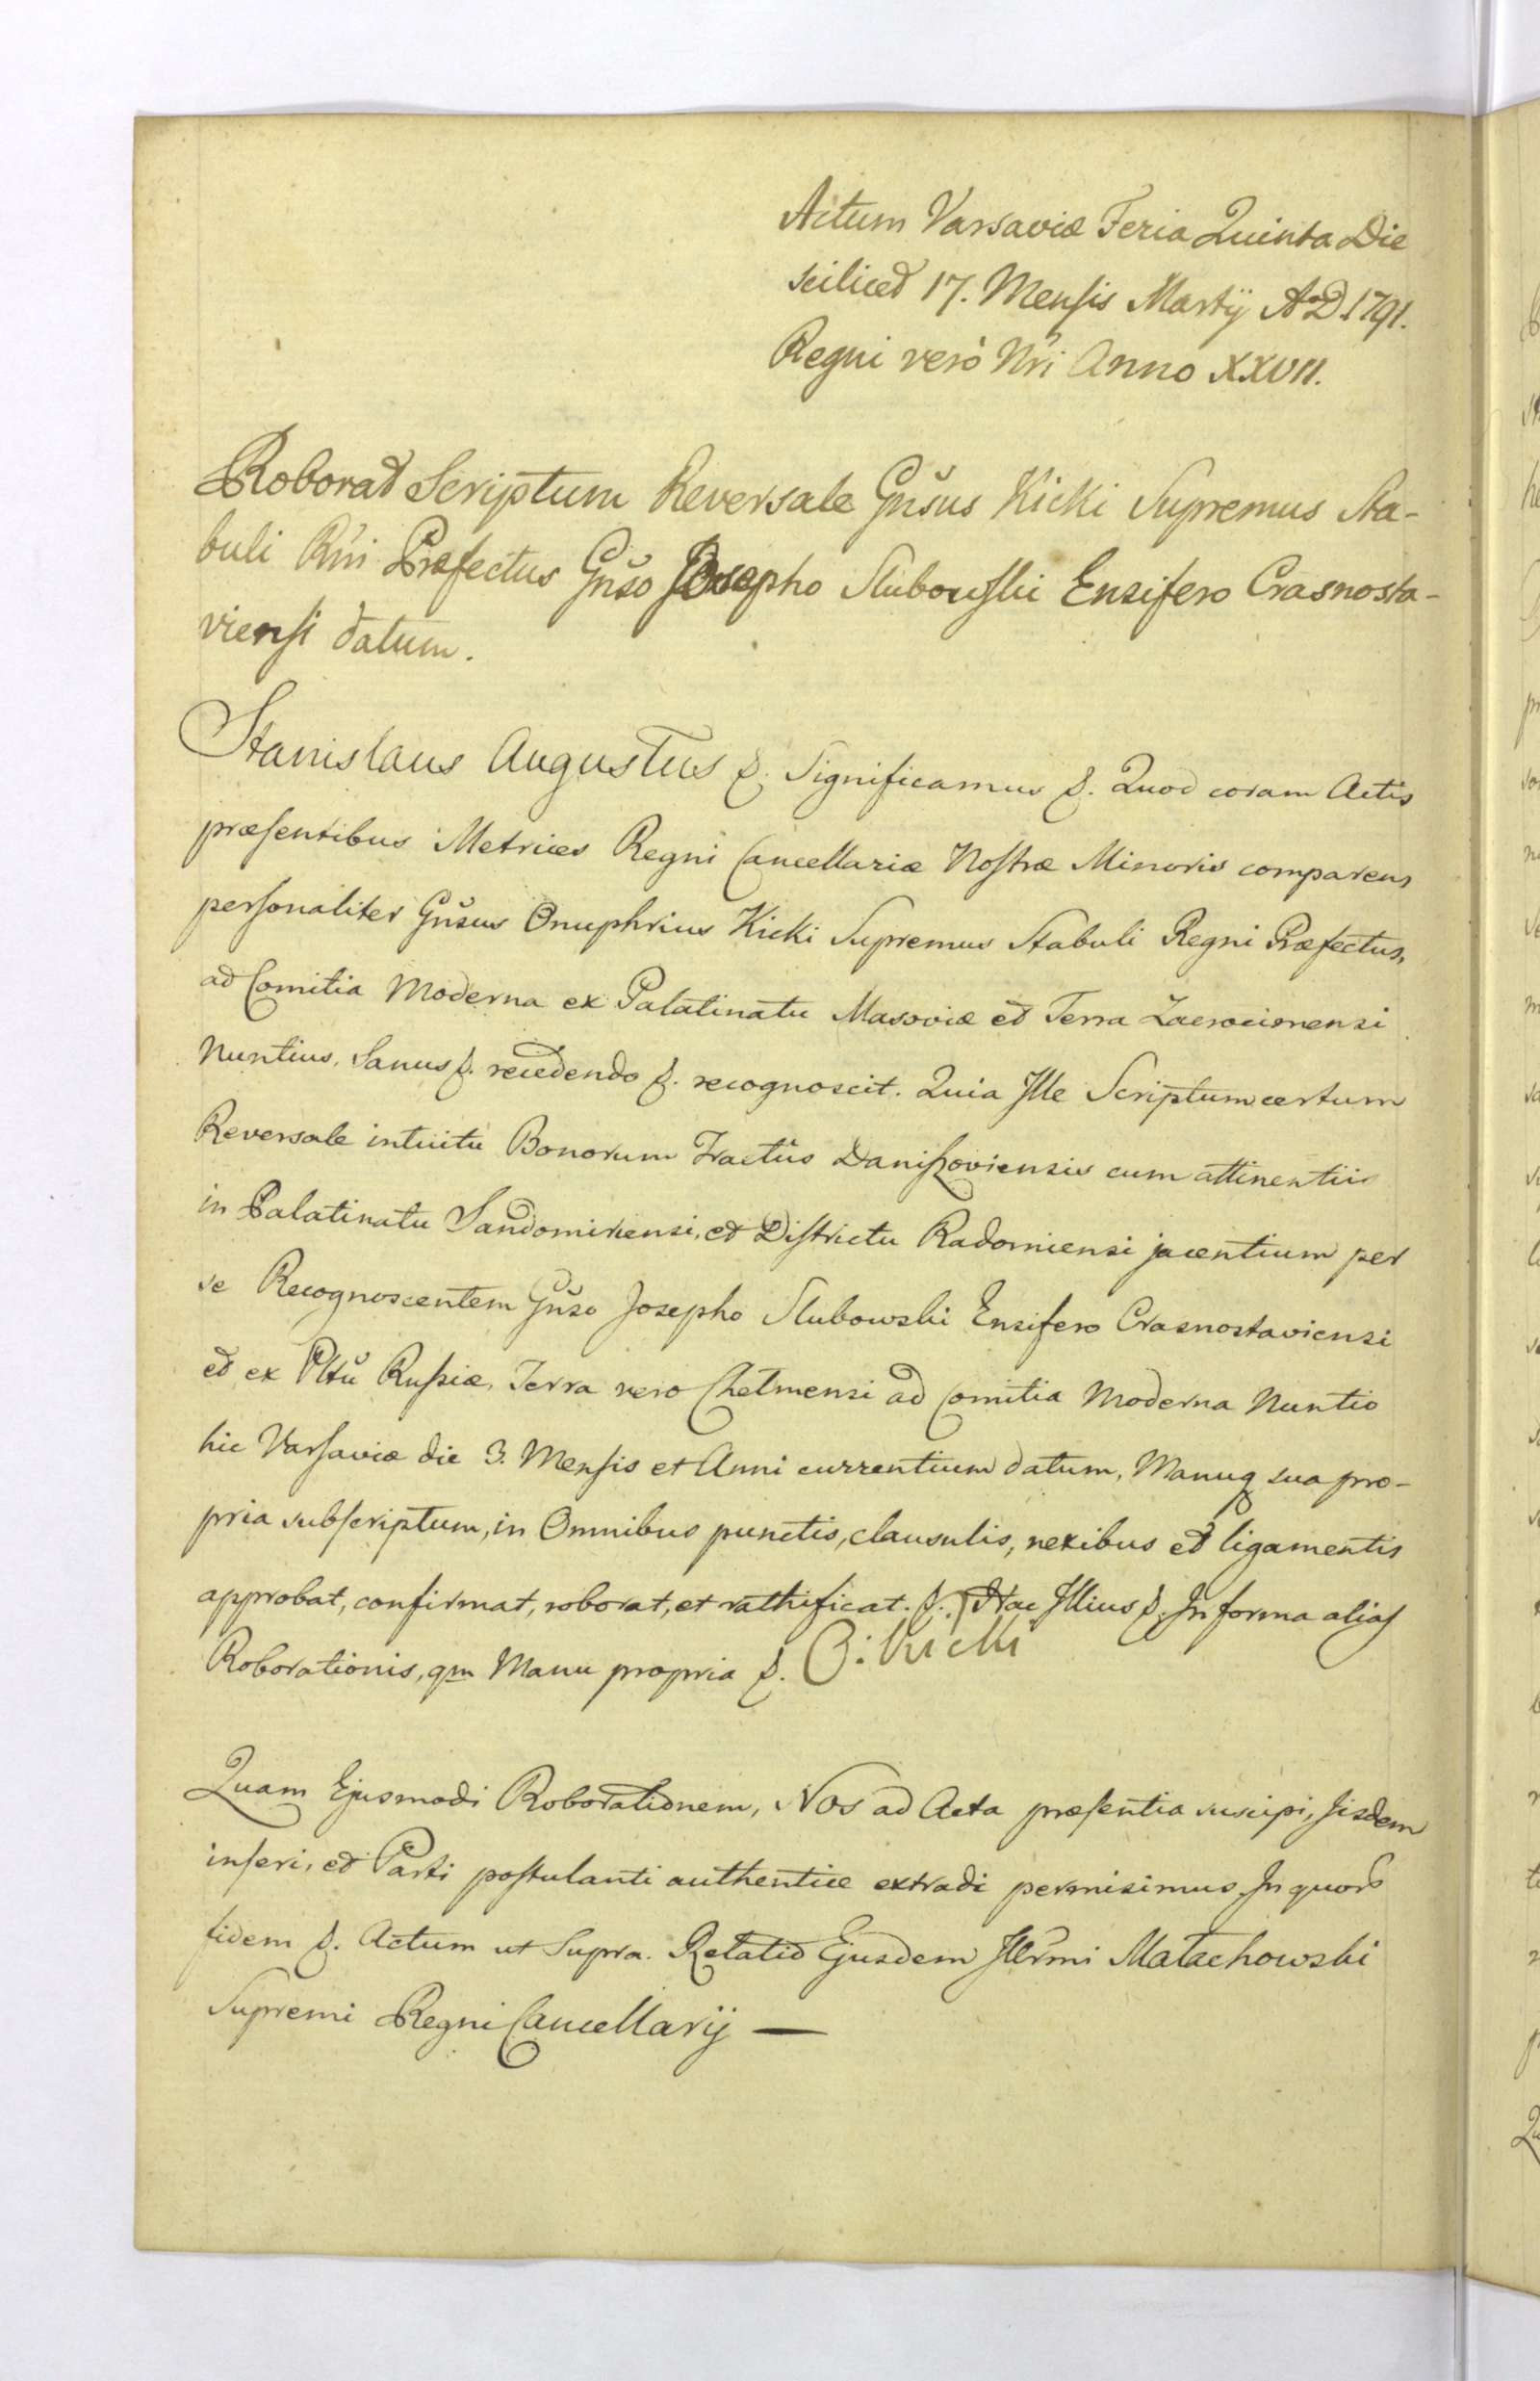 Actum Varsaviæ Feria Quinta Die
scilicet 17. Mensis Martÿ A.D. 1791.
Regni verò Nri Anno XXVII.
Roborat Scriptum Reversale Gnsus Kicki Supremus Sta-
buli Rni Præfectus Gnso Josepho Slubowski Ensifero Crasnosta-
viensi datum.
Stanislaus Augustus &. Significamus &. Quod coram Actis
præsentibus Metrices Regni Cancellariæ Nostræ Minoris comparens
personaliter Gnsus Onuphrius Kicki Supremus Stabuli Regni Præfectus,
ad Comitia Moderna ex Palatinatu Masoviæ et Terra Zacrocimensi
Nuntius, Sanus &. recedendo &. recognoscit. Quia Ille Scriptum certum
Reversale intuitu Bonorum Tractûs Daniszoviensis cum attinentiis
in Palatinatu Sandomiriensi, et Districtu Radomiensi jacentium per
se Recognoscentem Gnso Josepho Slubowski Ensifero Crasnostaviensi
et ex Pltu Russiæ, Terra vero Chelmensi ad Comitia Moderna Nuntio
hic Varsaviæ die 3. Mensis et Anni currentium datum, Manuq sua pro-
pria subscriptum, in Omnibus punctis, clausulis, nexibus et ligamentis
approbat, confirmat, roborat, et rathificat. &. Hac Illius &. In forma alias
Roborationis, qm Manu propria &. O: Kicki
Quam Ejusmodi Roborationem, Nos ad Acta præsentia suscipi, Iisdem
inseri, et Parti postulanti authentice extradi permisimus. In quors
fidem &. Actum ut Supra. Relatio Ejusdem Illrmi Małachowski
Supremi Regni Cancellarÿ —